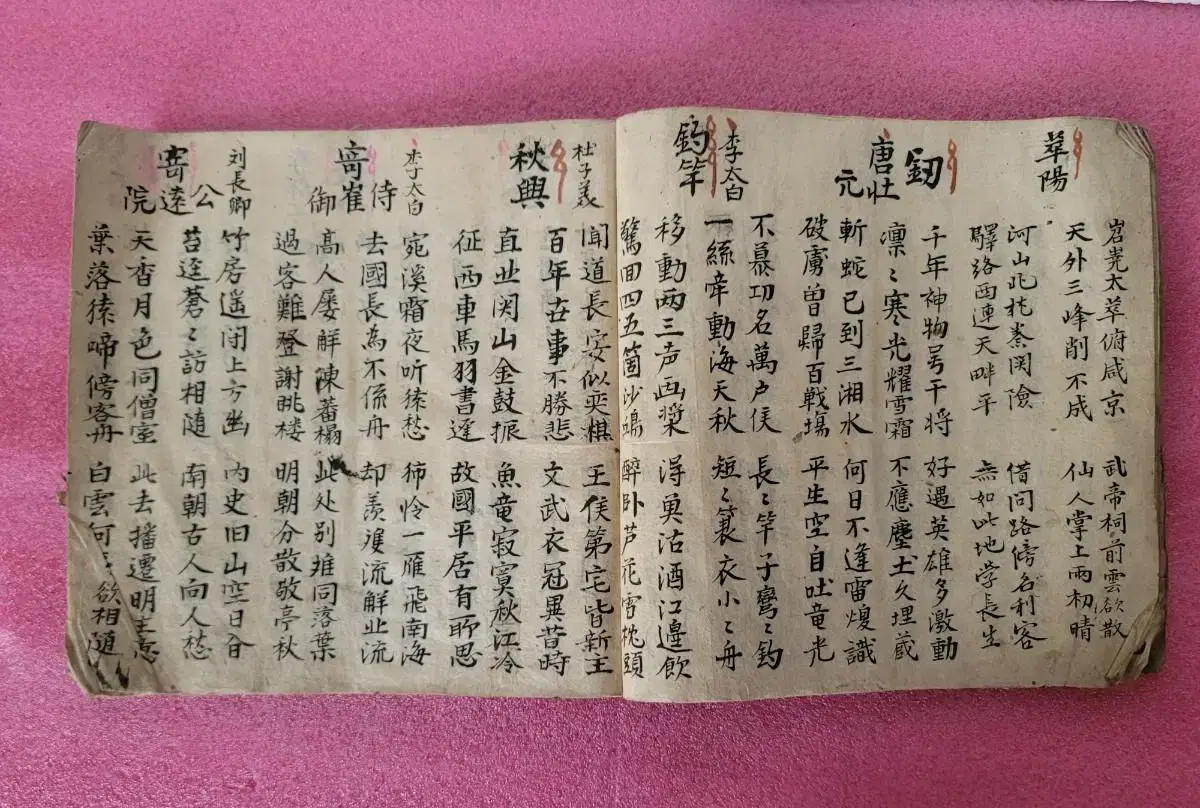 萃陽
岩嶤太萃俯咸京 武帝祠前雲欲散
天外三峰削不成 仙人掌上雨初晴
河山北枕秦関險 借问路傍名利客
驛路西連天畔平 無如此地学長生
釼
唐吐元
千年神物号干将 好遇英雄多激動
凛〻寒光耀雪霜 不應塵土久埋蔵
斬蛇已到三湘水 何日不逢雷煥識
破虜曾歸百戦塲 平生空自吐竜光
李太白
钓竿
不慕功名萬户侯 長〻竿子彎〻钓
一絲牵動海天秋 短〻簑衣小〻舟
移動两三声画槳 淂臾沽酒江邉飲
驚回四五箇沙鴎 醉卧芦花雪枕頭
杜子美
秋興
闻道長安似奕棋 王侯第宅皆新王
百年世事不勝悲 文武衣冠異昔時
直北関山金鼓振 魚竜寂寞秋江冷
征西車馬羽書遅 故國平居有所思
李太白
寄崔侍御
宛溪霜夜听猿愁 怜一雁飛南海
去國長為不係舟 却羡流解北流
高人屡解陳蕃榻 此处别难同落葉
過客難登謝眺楼 明朝分散敬亭秋
刘長卿
寄公逹院
竹房遥闭上方幽 内史旧山空日
苔逕蒼〻訪相随 南朝古人向人愁
天香月色同僧室 此去播遷明主意
葉落猿啼傍客舟 白雲何欲相随